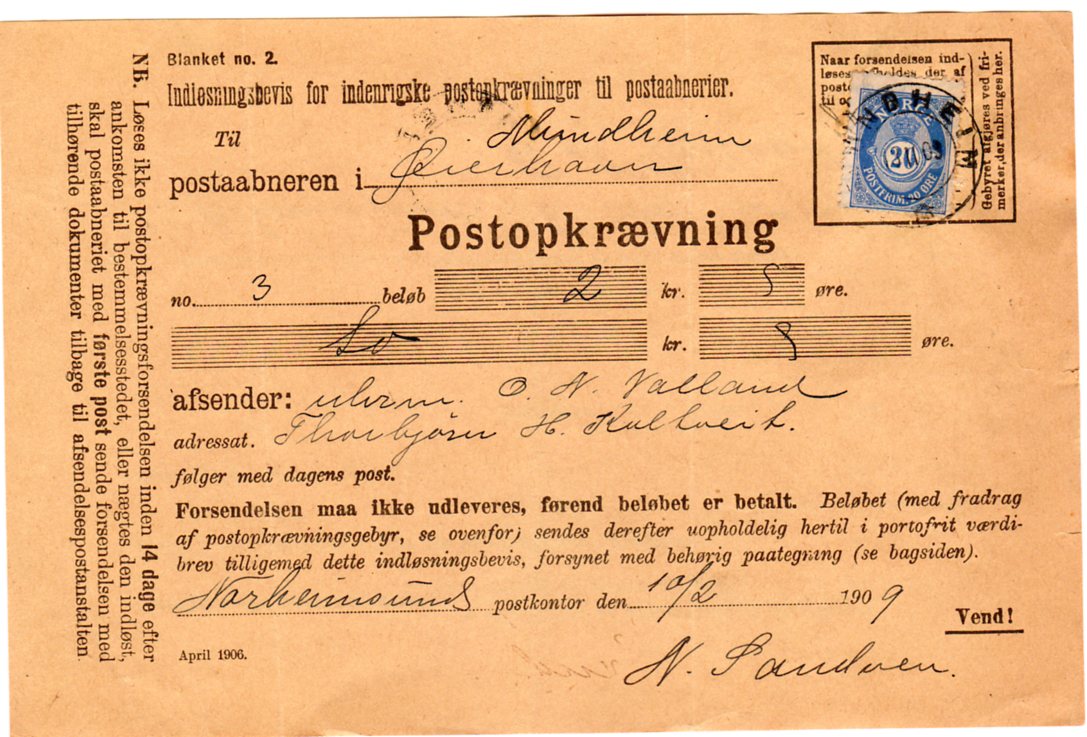 Blanket no. 2.
Indløsningsbevis for indenrigske postopkrævninger til postaabnerier.
Til Mundheim
postaabneren i
Naar forsendelsen ind-
løses
Gebyret afgjøres ved fri-
merker, der anbringes her.
NORGE
20
POSTFRIM. 20 ØRE
NDHEIM
09
Postopkrævning
no. 3 beløb 2 kr. 5 øre.
to kr. 5 øre.
afsender: O. N. Valland
adressat. Thorbjørn H. Koltveit.
følger med dagens post.
Forsendelsen maa ikke udleveres, førend beløbet er betalt. Beløbet (med fradrag
af postopkrævningsgebyr, se ovenfor) sendes derefter uopholdelig hertil i portofrit værdi-
brev tilligemed dette indløsningsbevis, forsynet med behørig paategning (se bagsiden).
Norheimsund postkontor den 10/2 1909
Vend!
April 1906.
N. Sandven.
NB. Løses ikke postopkrævningsforsendelsen inden 14 dage efter
ankomsten til bestemmelsesstedet, eller nægtes den indløst,
skal postaabneriet med første post sende forsendelsen med
tilhørende dokumenter tilbage til afsendelsespostanstalten.